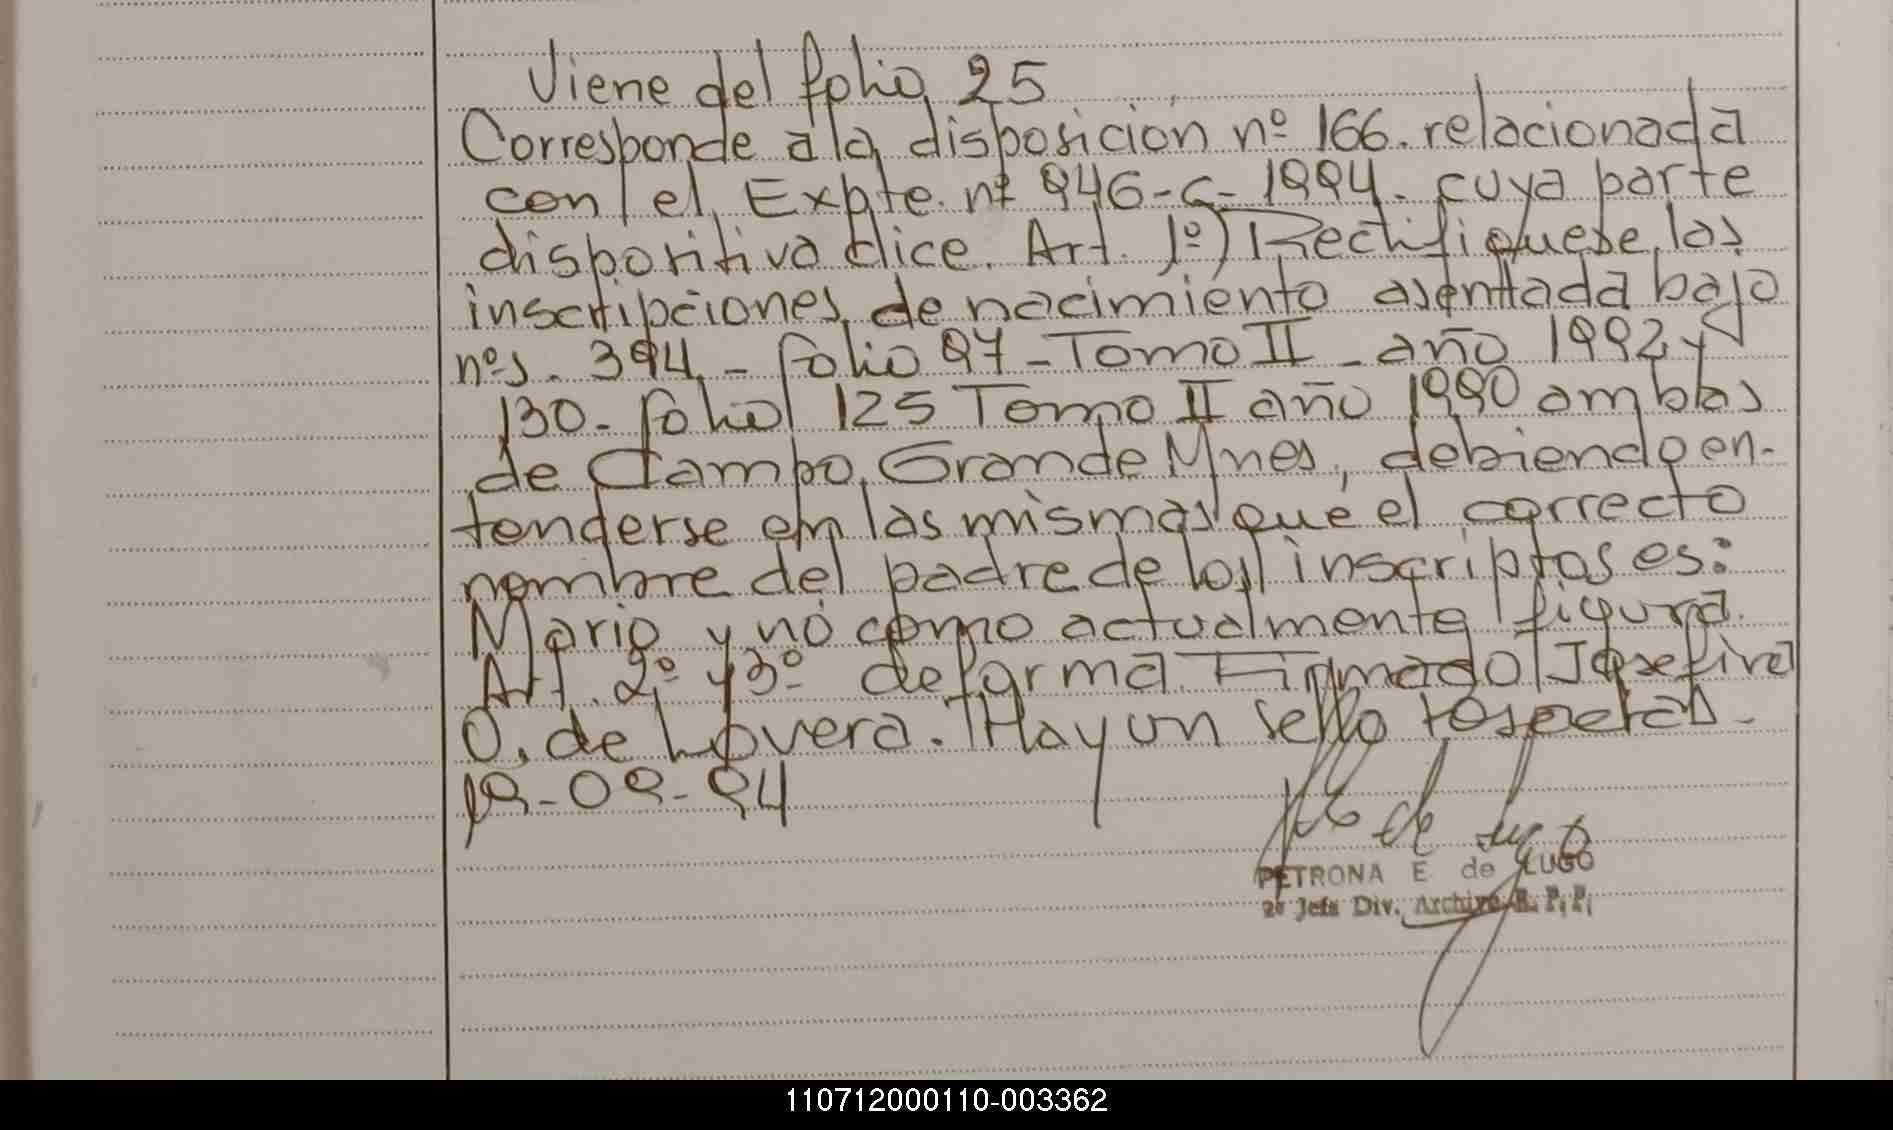 Viene del folio 25
Corresponde a la disposicion nº 166. relacionada
con el Expte. nº 946-C-1994. cuya parte
dispositiva dice. Art. 1º) Rectifiquese las
inscripciones de nacimiento asentada bajo
nºs. 394 - folio 97 - Tomo II - año 1992 y
130 - folio 125 Tomo II año 1990 ambas
de Campo Grande Mnes, debiendo en-
tenderse en las mismas que el correcto
nombre del padre de los inscriptos es:
Mario y no como actualmente figura.
Art. 2º y 3º de forma. Firmado Josefina
O. de Lovera. Hay un sello Posadas -
19-09-94
PETRONA E de LUGO
2º Jefa Div. Archivo R. P. P.
110712000110-003362